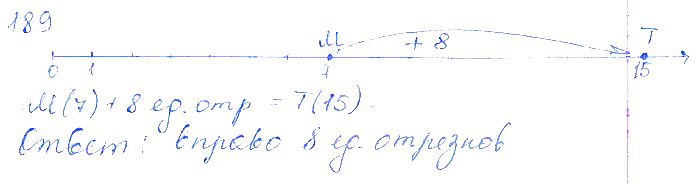 189
M + 8 T
0 1 7 15
M(7) + 8 ед. отр = T(15)
Ответ: вправо 8 ед. отрезков